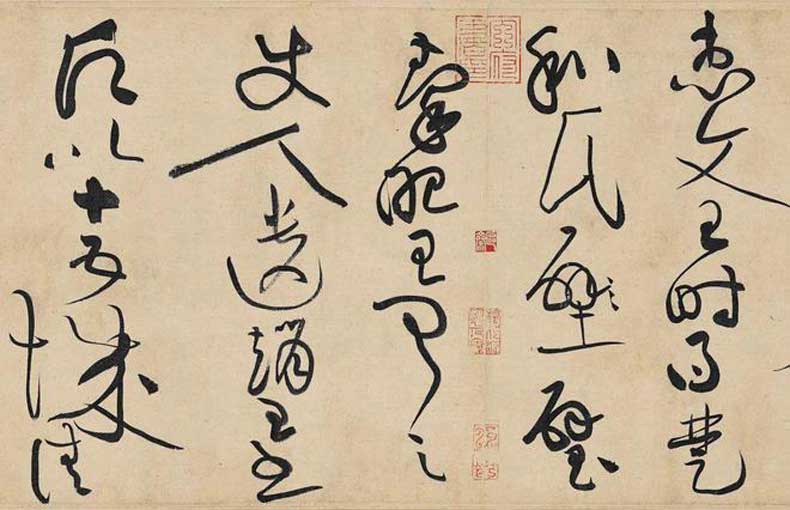 惠文王時得楚
和氏壁璧
秦昭王聞之
使人遺趙王書
願以十五城請